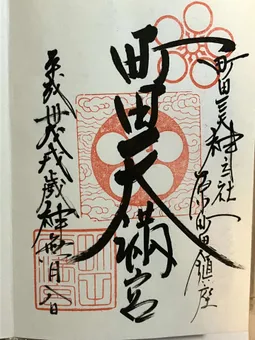 町田天神社
原町田鎮座
町田天満宮
平成卅戊戌歳神無月八日